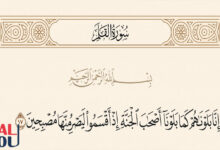 سُورَةُ القَلَمِ
بِسْمِ اللَّهِ الرَّحْمَٰنِ الرَّحِيمِ
إِنَّا بَلَوْنَاهُمْ كَمَا بَلَوْنَا أَصْحَابَ الْجَنَّةِ إِذْ أَقْسَمُوا لَيَصْرِمُنَّهَا مُصْبِحِينَ ١٧